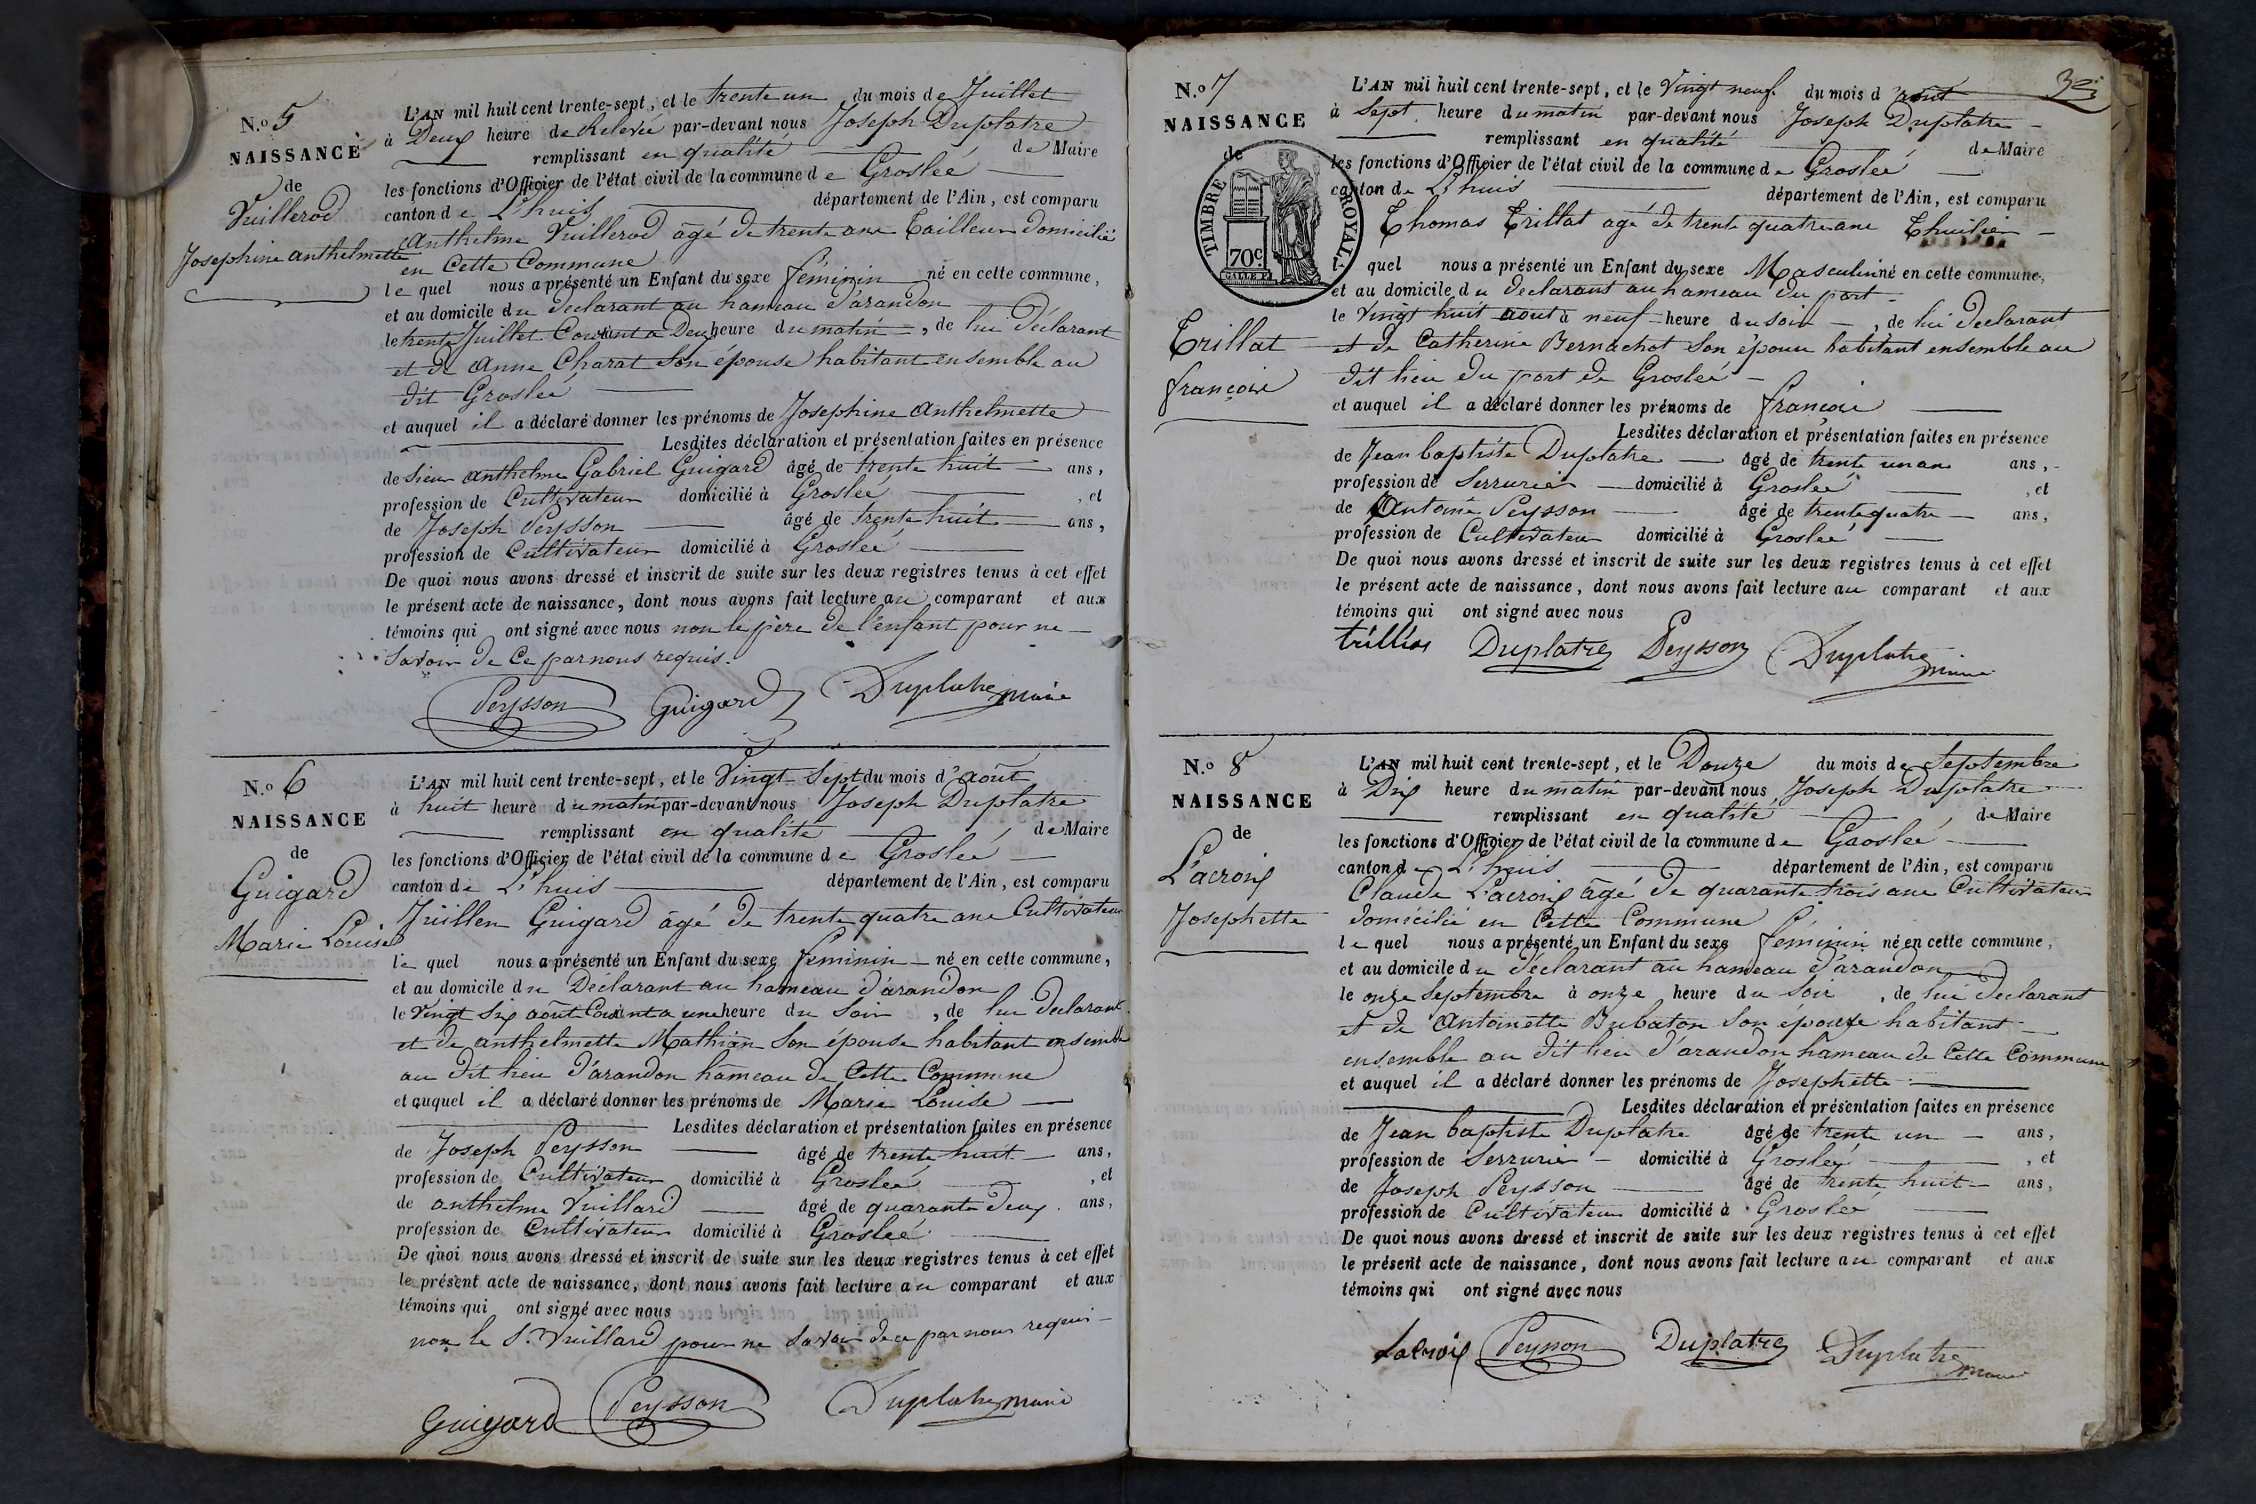 N.o 5
NAISSANCE
de
Vuillerod
Josephine anthelmette
L'AN mil huit cent trente-sept, et le trente un du mois de Juillet
à Deux heure de Relevée par-devant nous Joseph Duplatre
remplissant en qualité de Maire
les fonctions d'Officier de l'état civil de la commune de Groslée
canton de L'huis département de l'Ain, est comparu
Anthelme Vuillerod âgé de trente ans Tailleur domicilié
en Cette Commune
lequel nous a présenté un Enfant du sexe féminin né en cette commune,
et au domicile du declarant au hameau d'arandon
le trente Juillet Courant à Deux heure du matin, de lui Déclarant
et de Anne Charat son épouse habitant ensemble au
dit Groslée
et auquel il a déclaré donner les prénoms de Josephine Anthelmette
Lesdites déclaration et présentation faites en présence
de sieur anthelme Gabriel Guigard âgé de trente huit ans,
profession de Cultivateur domicilié à Groslée, et
de Joseph Peysson âgé de trente huit ans,
profession de Cultivateur domicilié à Groslée
De quoi nous avons dressé et inscrit de suite sur les deux registres tenus à cet effet
le présent acte de naissance, dont nous avons fait lecture au comparant et aux
témoins qui ont signé avec nous non le père de l'enfant pour ne
Savoir de Ce par nous requis.
Peysson Guigard Duplatre maire
N.o 6
NAISSANCE
de
Guigard
Marie Louise
L'AN mil huit cent trente-sept, et le Vingt Sept du mois d'août
à huit heure du matin par-devant nous Joseph Duplatre
remplissant en qualité de Maire
les fonctions d'Officier de l'état civil de la commune de Groslée
canton de L'huis département de l'Ain, est comparu
Juillen Guigard âgé de trente quatre ans Cultivateur
lequel nous a présenté un Enfant du sexe féminin né en cette commune,
et au domicile du Déclarant au hameau d'arandon
le Vingt Six août Courant à une heure du Soir, de lui declarant
et de anthelmette Mathian Son épouse habitant ensemble
au dit lieu d'arandon hameau de Cette Commune
et auquel il a déclaré donner les prénoms de Marie Louise
Lesdites déclaration et présentation faites en présence
de Joseph Peysson âgé de trente huit ans,
profession de Cultivateur domicilié à Groslée, et
de anthelme Vuillard âgé de quarante deux ans,
profession de Cultivateur domicilié à Groslée
De quoi nous avons dressé et inscrit de suite sur les deux registres tenus à cet effet
le présent acte de naissance, dont nous avons fait lecture au comparant et aux
témoins qui ont signé avec nous
non le S. Vuillard pour ne Savoir de ce par nous requis
Guigard Peysson Duplatre maire
N.o 7
NAISSANCE
de
TIMBRE ROYAL.
70c
Trillat
françois
L'AN mil huit cent trente-sept, et le Vingt neuf du mois d'août
à Sept heure du matin par-devant nous Joseph Duplatre
remplissant en qualité de Maire
les fonctions d'Officier de l'état civil de la commune de Groslée
canton de L'huis département de l'Ain, est comparu
Thomas Trillat agé de trente quatre ans Thuilier
l quel nous a présenté un Enfant du sexe Masculin né en cette commune,
et au domicile du declarant au hameau du port
le Vingt huit aout à neuf heure du soir, de lui declarant
et de Catherine Bernachot son épouse habitant ensemble au
dit lieu du port de Groslée
et auquel il a déclaré donner les prénoms de françois
Lesdites déclaration et présentation faites en présence
de Jean baptiste Duplatre âgé de trente un ans ans,
profession de Serrurier domicilié à Groslée, et
de Antoine Peysson âgé de trente quatre ans,
profession de Cultivateur domicilié à Groslée
De quoi nous avons dressé et inscrit de suite sur les deux registres tenus à cet effet
le présent acte de naissance, dont nous avons fait lecture au comparant et aux
témoins qui ont signé avec nous
Duplatre Peysson Duplatre maire
N.o 8
NAISSANCE
de
Lacroix
Josephette
L'AN mil huit cent trente-sept, et le Douze du mois de Septembre
à Dix heure du matin par-devant nous Joseph Duplatre
remplissant en qualité de Maire
les fonctions d'Officier de l'état civil de la commune de Groslée
canton de L'huis département de l'Ain, est comparu
Claude Lacroix âgé de quarante trois ans Cultivateur
domicilié en Cette Commune
lequel nous a présenté un Enfant du sexe féminin né en cette commune,
et au domicile du déclarant au hameau d'arandon
le onze Septembre à onze heure du Soir, de lui declarant
et de Antoinette Bubaton Son épouse habitant
ensemble au dit lieu d'arandon hameau de Cette Commune
et auquel il a déclaré donner les prénoms de Josephette
Lesdites déclaration et présentation faites en présence
de Jean baptiste Duplatre âgé de trente un ans,
profession de Serrurier domicilié à Groslée, et
de Joseph Peysson âgé de trente huit ans,
profession de Cultivateur domicilié à Groslée
De quoi nous avons dressé et inscrit de suite sur les deux registres tenus à cet effet
le présent acte de naissance, dont nous avons fait lecture au comparant et aux
témoins qui ont signé avec nous
Lacroix Peysson Duplatre Duplatre maire